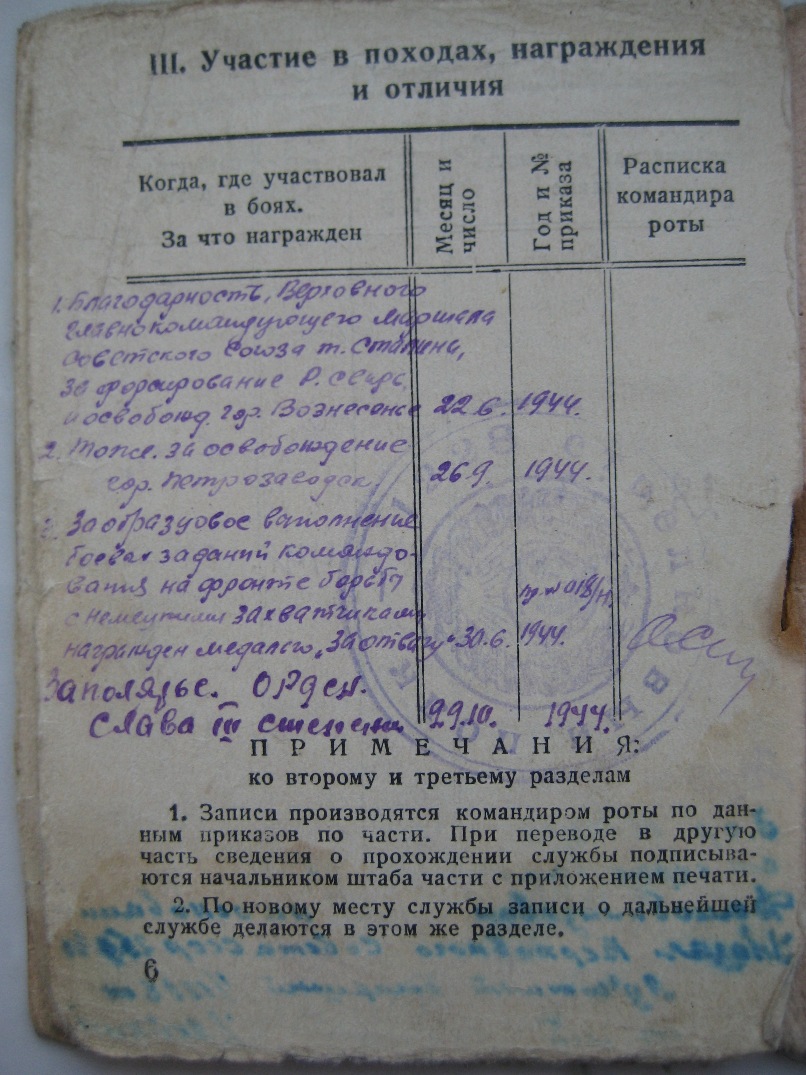 III. Участие в походах, награждения
и отличия
Когда, где участвовал
в боях.
За что награжден
Месяц и
число
Год и №
приказа
Расписка
командира
роты
1. Благодарность, Верховного
Главнокомандующего Маршала
Советского Союза т. Сталина,
За форсирование р. Свирь,
и освобожд. гор. Вознесенье 22.6. 1944.
2. Тоже. за освобождение
гор. Петрозаводск. 26.9. 1944.
За образцовое выполнение
боевых заданий командо-
вания на фронте борьбы
с немецкими захватчиками
награжден медалью „За отвагу" 30.6. 1944.
пр. № 018/н.
Заполярье. Орден.
Слава III степени 29.10. 1944.
ПРИМЕЧАНИЯ:
ко второму и третьему разделам
1. Записи производятся командиром роты по дан-
ным приказов по части. При переводе в другую
часть сведения о прохождении службы подписыва-
ются начальником штаба части с приложением печати.
2. По новому месту службы записи о дальнейшей
службе делаются в этом же разделе.
6